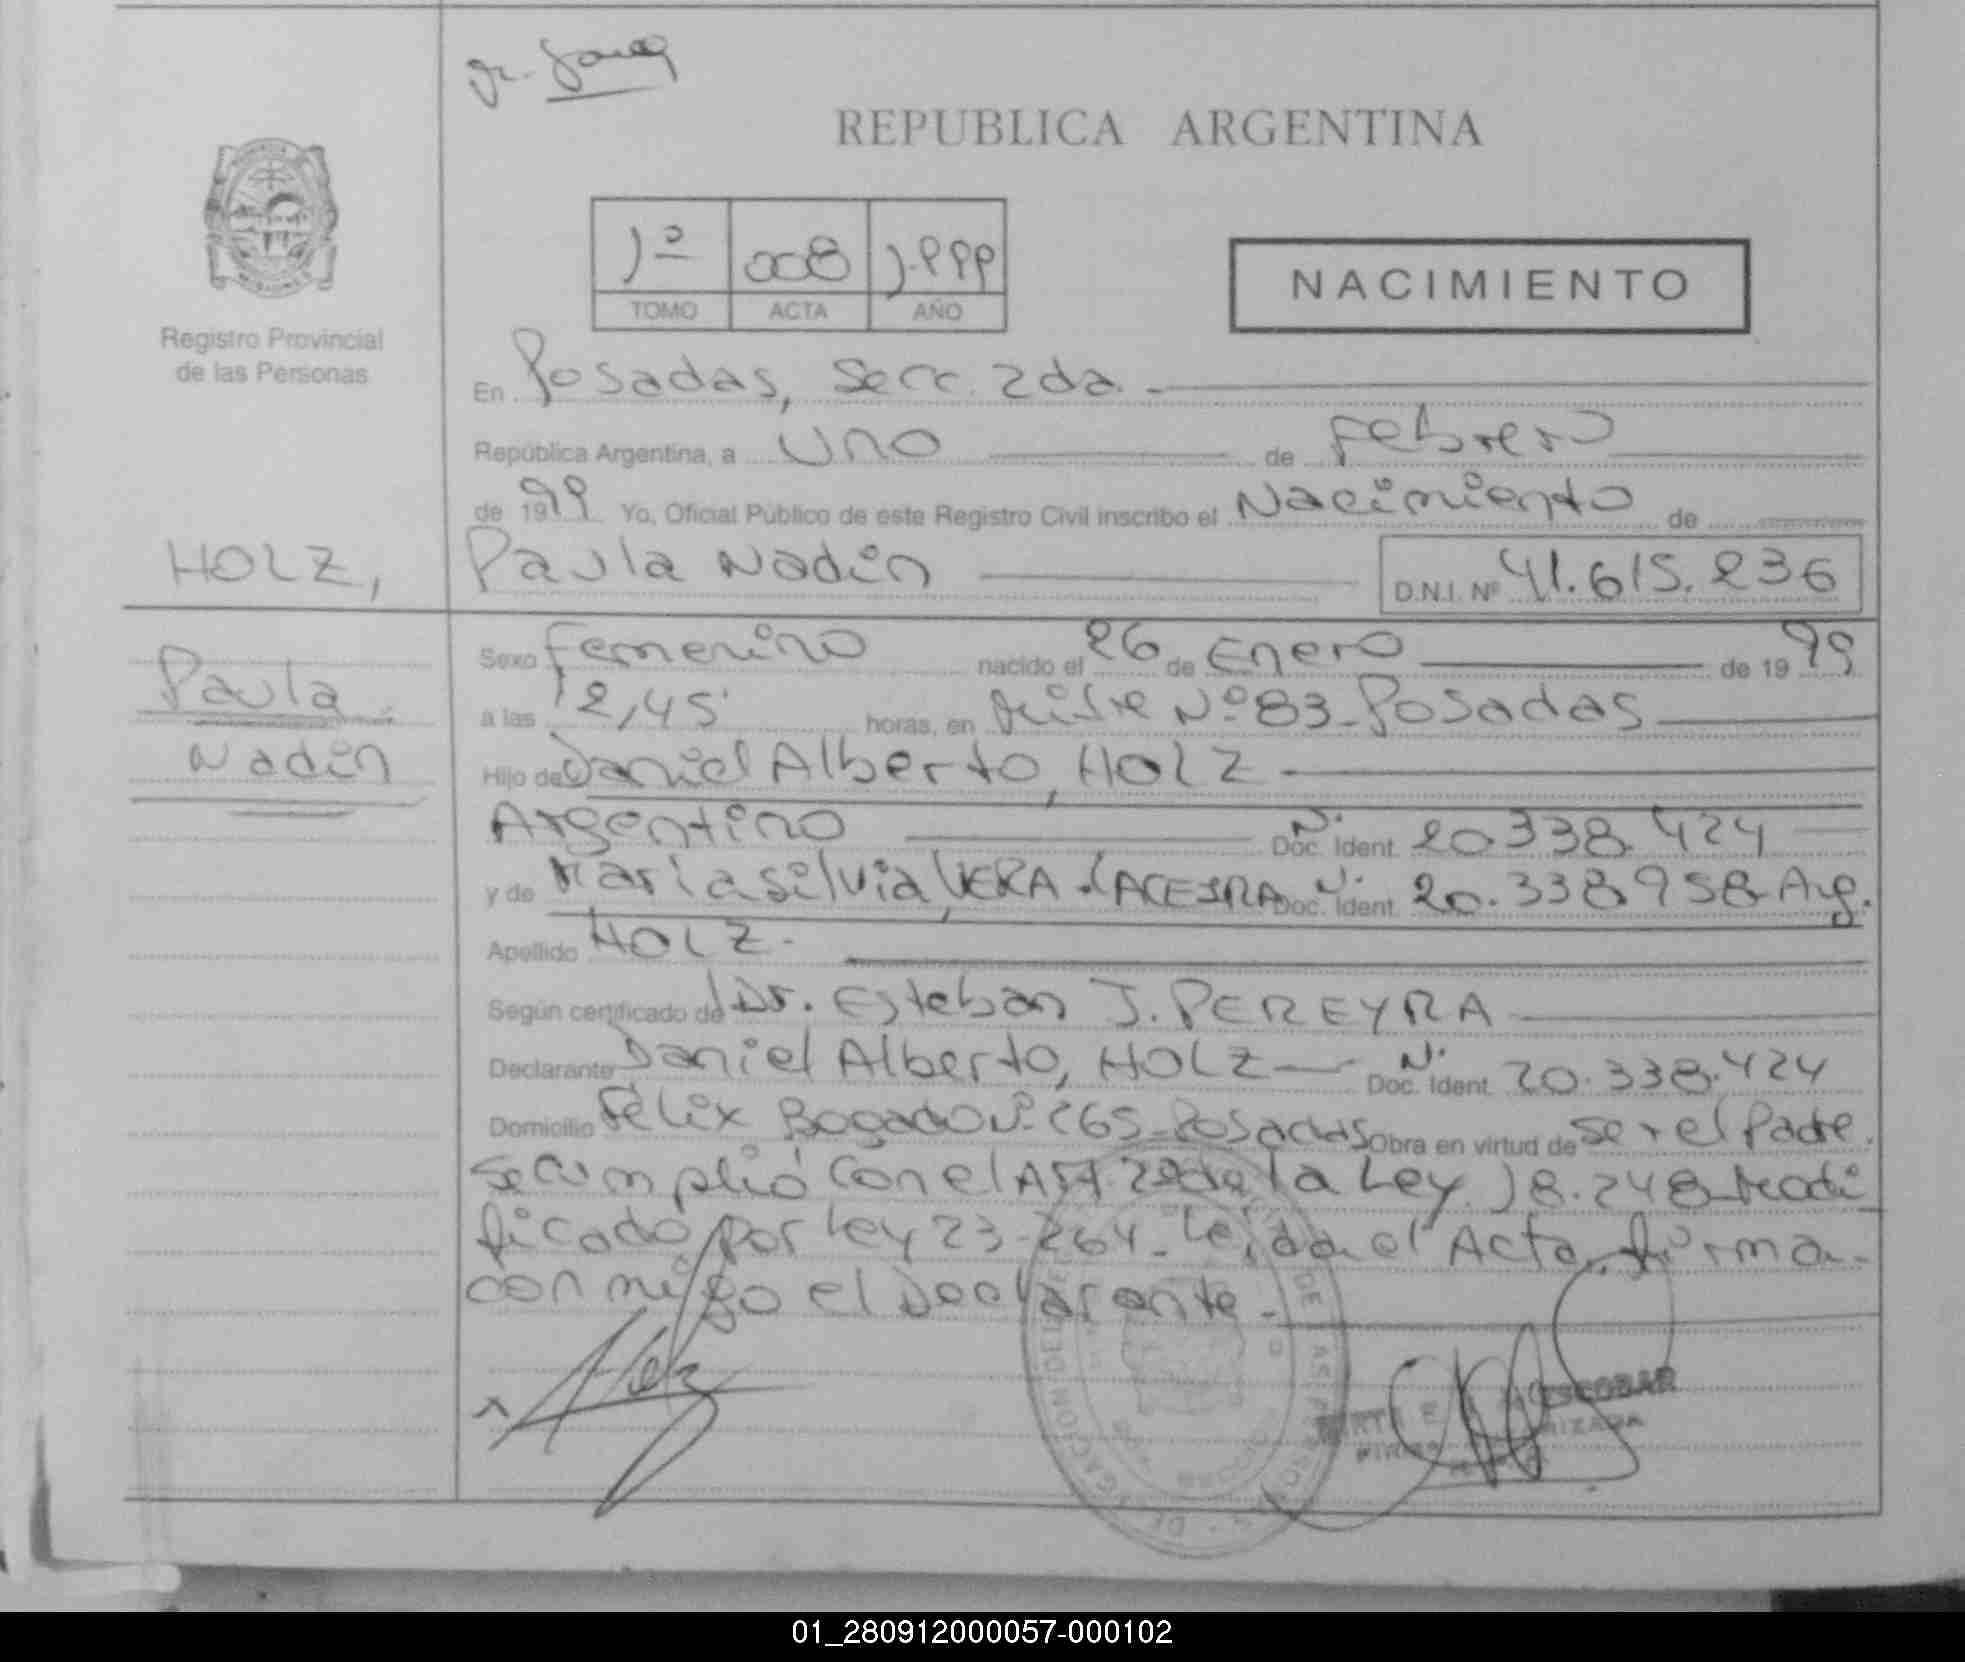 REPUBLICA ARGENTINA
1º 008 1.999
TOMO ACTA AÑO
NACIMIENTO
Registro Provincial
de las Personas
En Posadas, Secc. 2da.-
República Argentina, a Uno de Febrero
de 1999 Yo, Oficial Público de este Registro Civil inscribo el Nacimiento de
HOLZ, Paula Nadin D.N.I. Nº 41.615.236
Paula
Nadin
Sexo Femenino nacido el 26 de Enero de 1999
a las 12,45 horas, en Nº 83-Posadas
Hijo de Daniel Alberto, HOLZ
Argentino Doc. Ident. N. 20.338.424
y de Maria Silvia, VERA Doc. Ident. N. 20.338.958-Arg.
Apellido HOLZ-
Según certificado de Dr. Esteban J. PEREYRA
Declarante Daniel Alberto, HOLZ Doc. Ident. N. 20.338.424
Domicilio Félix Bogado Nº 265-Posadas Obra en virtud de ser el Padre.
Se cumplió con el Art. 2º de la Ley 18.248-Modi
ficado por Ley 23-264-Leída el Acta, firma
conmigo el Declarante-
x Holz
ESCOBAR
01_280912000057-000102